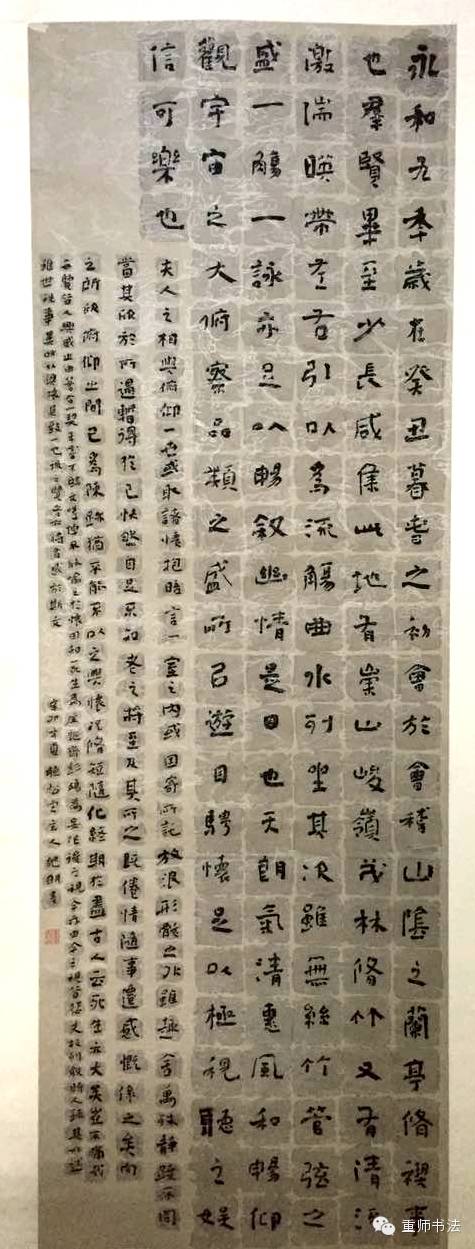 永和九年歲在癸丑暮春之初會於會稽山陰之蘭亭脩禊事
也羣賢畢至少長咸集此地有崇山峻嶺茂林脩竹又有清流
激湍暎帶左右引以為流觴曲水列坐其次雖無絲竹管弦之
盛一觴一詠亦足以暢敘幽情是日也天朗氣清惠風和暢仰
觀宇宙之大俯察品類之盛所以遊目騁懷足以極視聽之娛
信可樂也
夫人之相與俯仰一世或取諸懷抱晤言一室之內或因寄所託放浪形骸之外雖趣舍萬殊靜躁不同
當其欣於所遇暫得於己怏然自足不知老之將至及其所之既倦情隨事遷感慨係之矣向
之所欣俯仰之間已為陳跡猶不能不以之興懷況脩短隨化終期於盡古人云死生亦大矣豈不痛哉
每覽昔人興感之由若合一契未嘗不臨文嗟悼不能喻之於懷固知一死生為虛誕齊彭殤為妄作後之視今亦由今之視昔悲夫故列敘時人錄其所述
雖世殊事異所以興懷其致一也後之覽者亦將有感於斯文
主人
重师书法